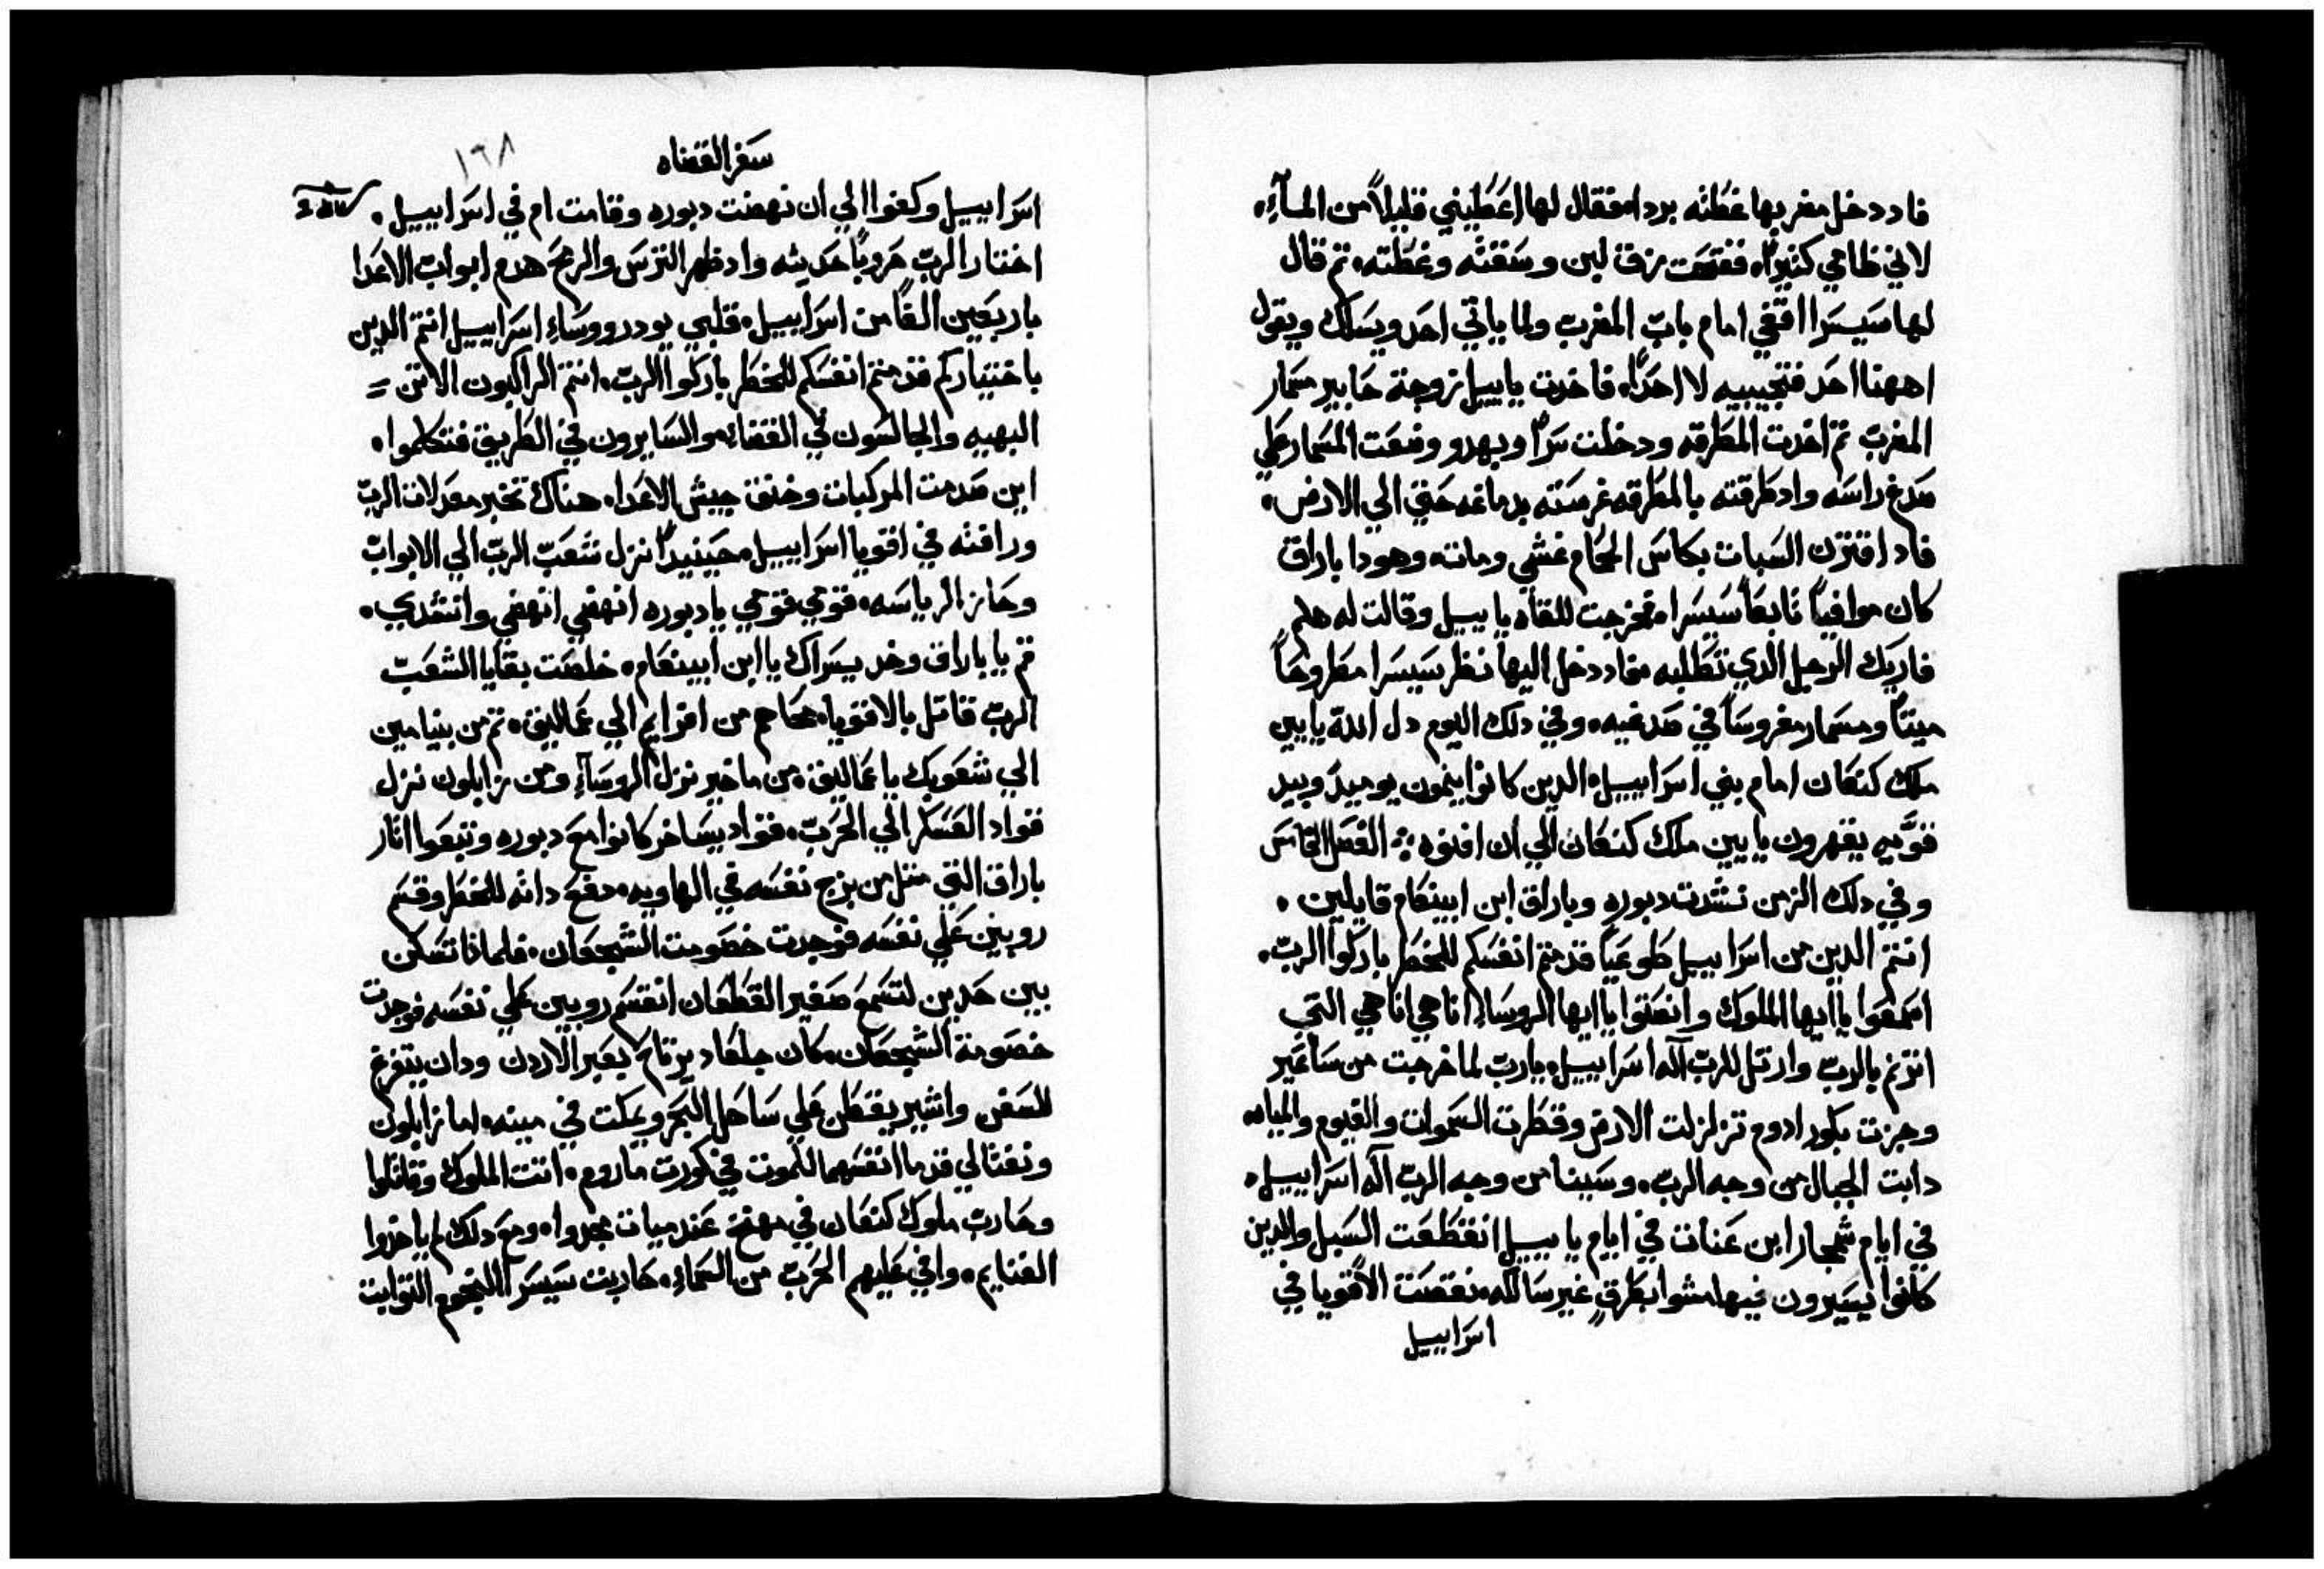 فاد دخل مضربها غطته بردا فقال لها اعَطيني قليلاً من المآءِ
لاني ظامي كتيراً ففتحت زق لبن وسَقته وغطته تم قال
لها سَيسَرا اقفي امام بابّ المضربّ ولما ياتي احَد ويسَلك ويقول
اههنا احَد فتجيبيه لا احَداً فاخدت ياييل زوجة حَابير مسَمار
المضربّ تم اخدت المطَرقه ودخلت سَراً وبهدو وضعَت المسَمار عَلي
صَدغ راسَه واد طَرقته بالمطَرقه غرسَته بدماغه حَتي الي الارض
فاد اقترن السَبات بكاسَ الحَمام غشي ومات وهودا باراق
كان موافياً تابعَاً سَيسَرا فخرجت للقاه ياييل وقالت له هلم
فاريك الرجل الدي تَطلبه فاد دخل اليها نظر سَيسَرا مطَروحَاً
ميتاً ومسَمار مغروسَاً في صَدغيه وفي دلك اليوم دل الله يابين
ملك كنعَان امام بني اسَراييل الدين كانوا ينمون يوميدً وبيد
قوَّيه يقهرون يابين ملك كنعَان الي ان افنوه الفصَل الخامسَ
وفي دلك الزمن نشَدت دبوره وباراق ابن ابينعَام قايلين
انتم الدين من اسَراييل طَوعَياً قدمتم انفسَكم للخطَر باركوا الربّ
اسَمعَوا يا ايها الملوك وانصَتوا يا ايها الروسَاءِ انا هي انا هي التي
اترنم بالربّ وارتل للربّ اله اسَراييل يا ربّ لما خرجت من سَاعَير
وجزت بكور ادوم تزلزلت الارض وقطَرت السَموات والغيوم والمياه
دابت الجبال من وجه الربّ وسَينا من وجه الربّ اله اسَراييل
في ايام شمجار ابن عَنات في ايام ياييل انقطَعَت السَبل والدين
كانوا يسَيرون فيها مشوا بطَرقٍ غير سَالكه نقصَت الاقويا في
اسَراييل
سَفر القضاه
١٦٨
اسَراييل وكفوا الي ان نهضت دبوره وقامت ام في اسَراييل
اختار الربّ حَروباً حَديثه واد ظهر الترسَ والرمحَ هدم ابوابّ الاعَدا
باربعَين الفاً من اسَراييل قلبي يود روسَاءِ اسَراييل انتم الدين
باختياركم قدمتم انفسَكم للخطَر باركوا الربّ انتم الراكبون الاتن
البهيه والجالسَون في القضاء والسَايرون في الطَريق فتكلموا
اين صَدمت المركبات وخنق جيش الاعَدا هناك تخبر معَدلات الربّ
ورافته في اقويا اسَراييل حَينيدٍ نزل شعَبّ الربّ الي الابوابّ
وحَاز الرياسَه قومي قومي يا دبوره انهضي انهضي وانشدي
قم يا باراق وخد يسَراك يا ابن ابينعَام خلصَت بقايا الشعَبّ
الربّ قاتل بالاقويا محَاهم من افرايم الي عَماليق تم من بنيامين
الي شعَوبك يا عَماليق من ماخير نزل الروسَآءِ ومن زابلون نزل
قواد العَسَكر الي الحَربّ قواد يسَاخر كانوا معَ دبوره وتبعَوا اتار
باراق التي متل من يزج نفسَه في الهاويه دفعَ داته للخطَر وقسَم
روبين عَلي نفسَه فوجدت خصَومت الشجعَان فلمادا تسَكن
بين حَدين لتسَمعَ صَفير القطَعَان انقسَم روبين عَلي نفسَه فوجدت
خصَومة الشجعَان كان جلعَاد يرتاح بعَبر الاردن ودان يتفرغ
للسَفن واشير يقطَن عَلي سَاحَل البحَر ويمكت في مينه اما زابلون
ونفتالي قدما انفسَهما للموت في كورت ماروم اتت الملوك وقاتلوا
وحَاربّ ملوك كنعَان في مهنخ عَند ميات مجدوا ومعَ دلك لم ياخدوا
الغنايم وافي عَليهم الحَربّ من السَماءِ حَاربت سَيسَرا النجوم التوابت